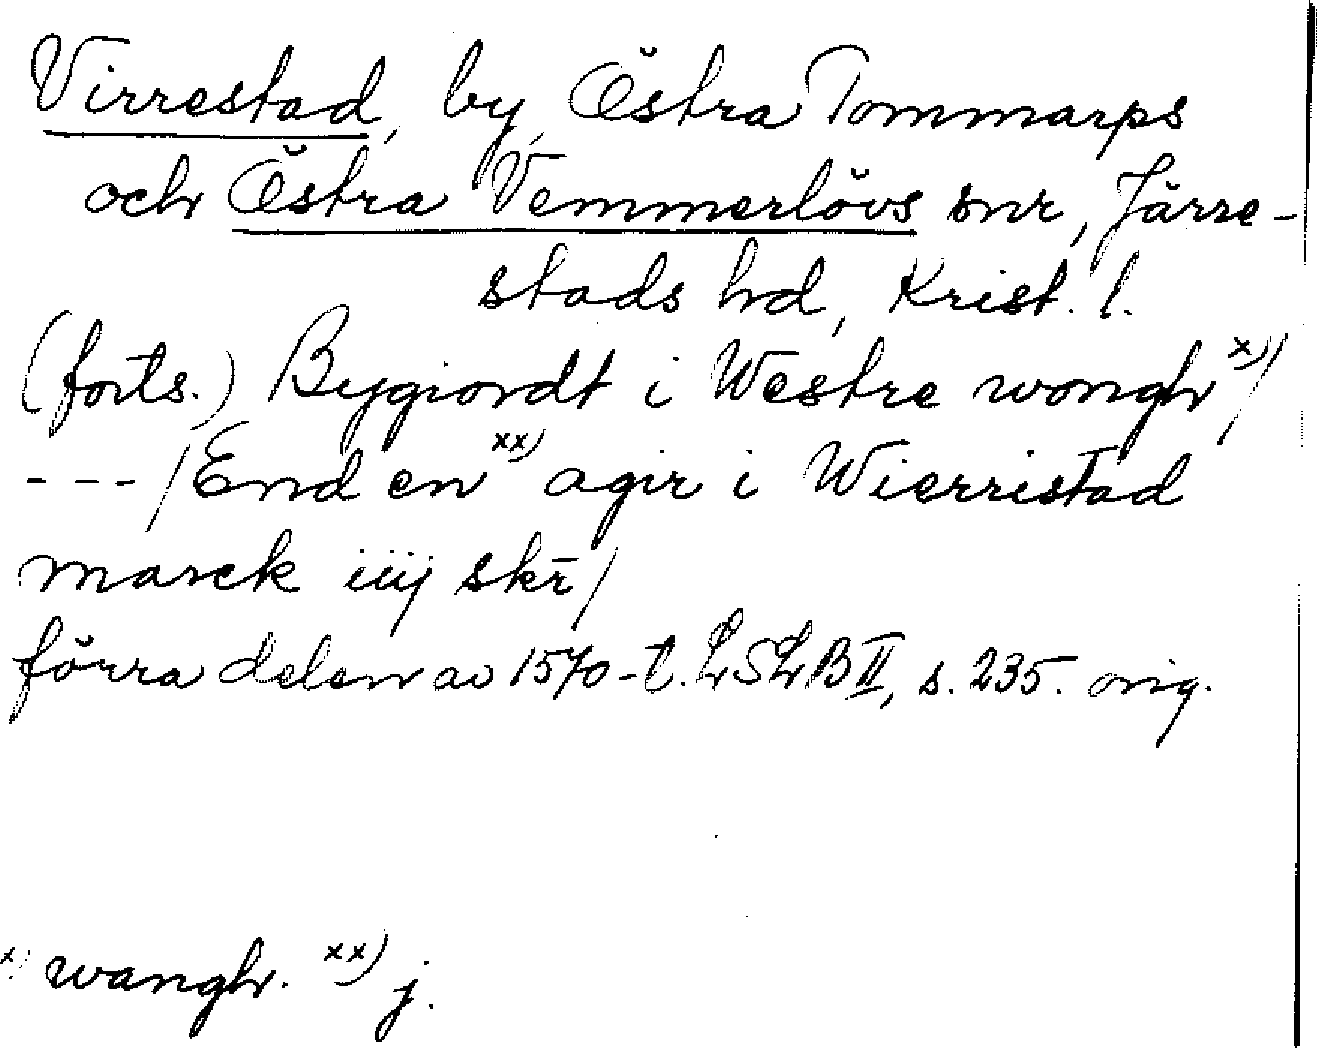 Virrestad, by, Östra Tommarps
och Östra Vemmerlövs snr, Järre-
stads hd, Krist. l.
(forts.) Bygiordt i Westre wongh x)/
--- /End en xx) agir i Wierristad
marck iiij skr̄/
förra delen av 1570-t. LSLB II, s. 235. orig.
x) wangh. xx) j.